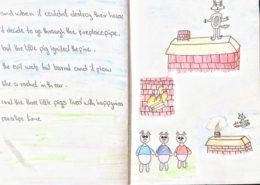 and when it couldn't destroy their house
it decide to go through the fireplace pipe.
but the little pig ignited the fire.
the evil wolf hot burned and it flow
like a rocket in the air.
and the three little pigs lived with happyines
for a life time